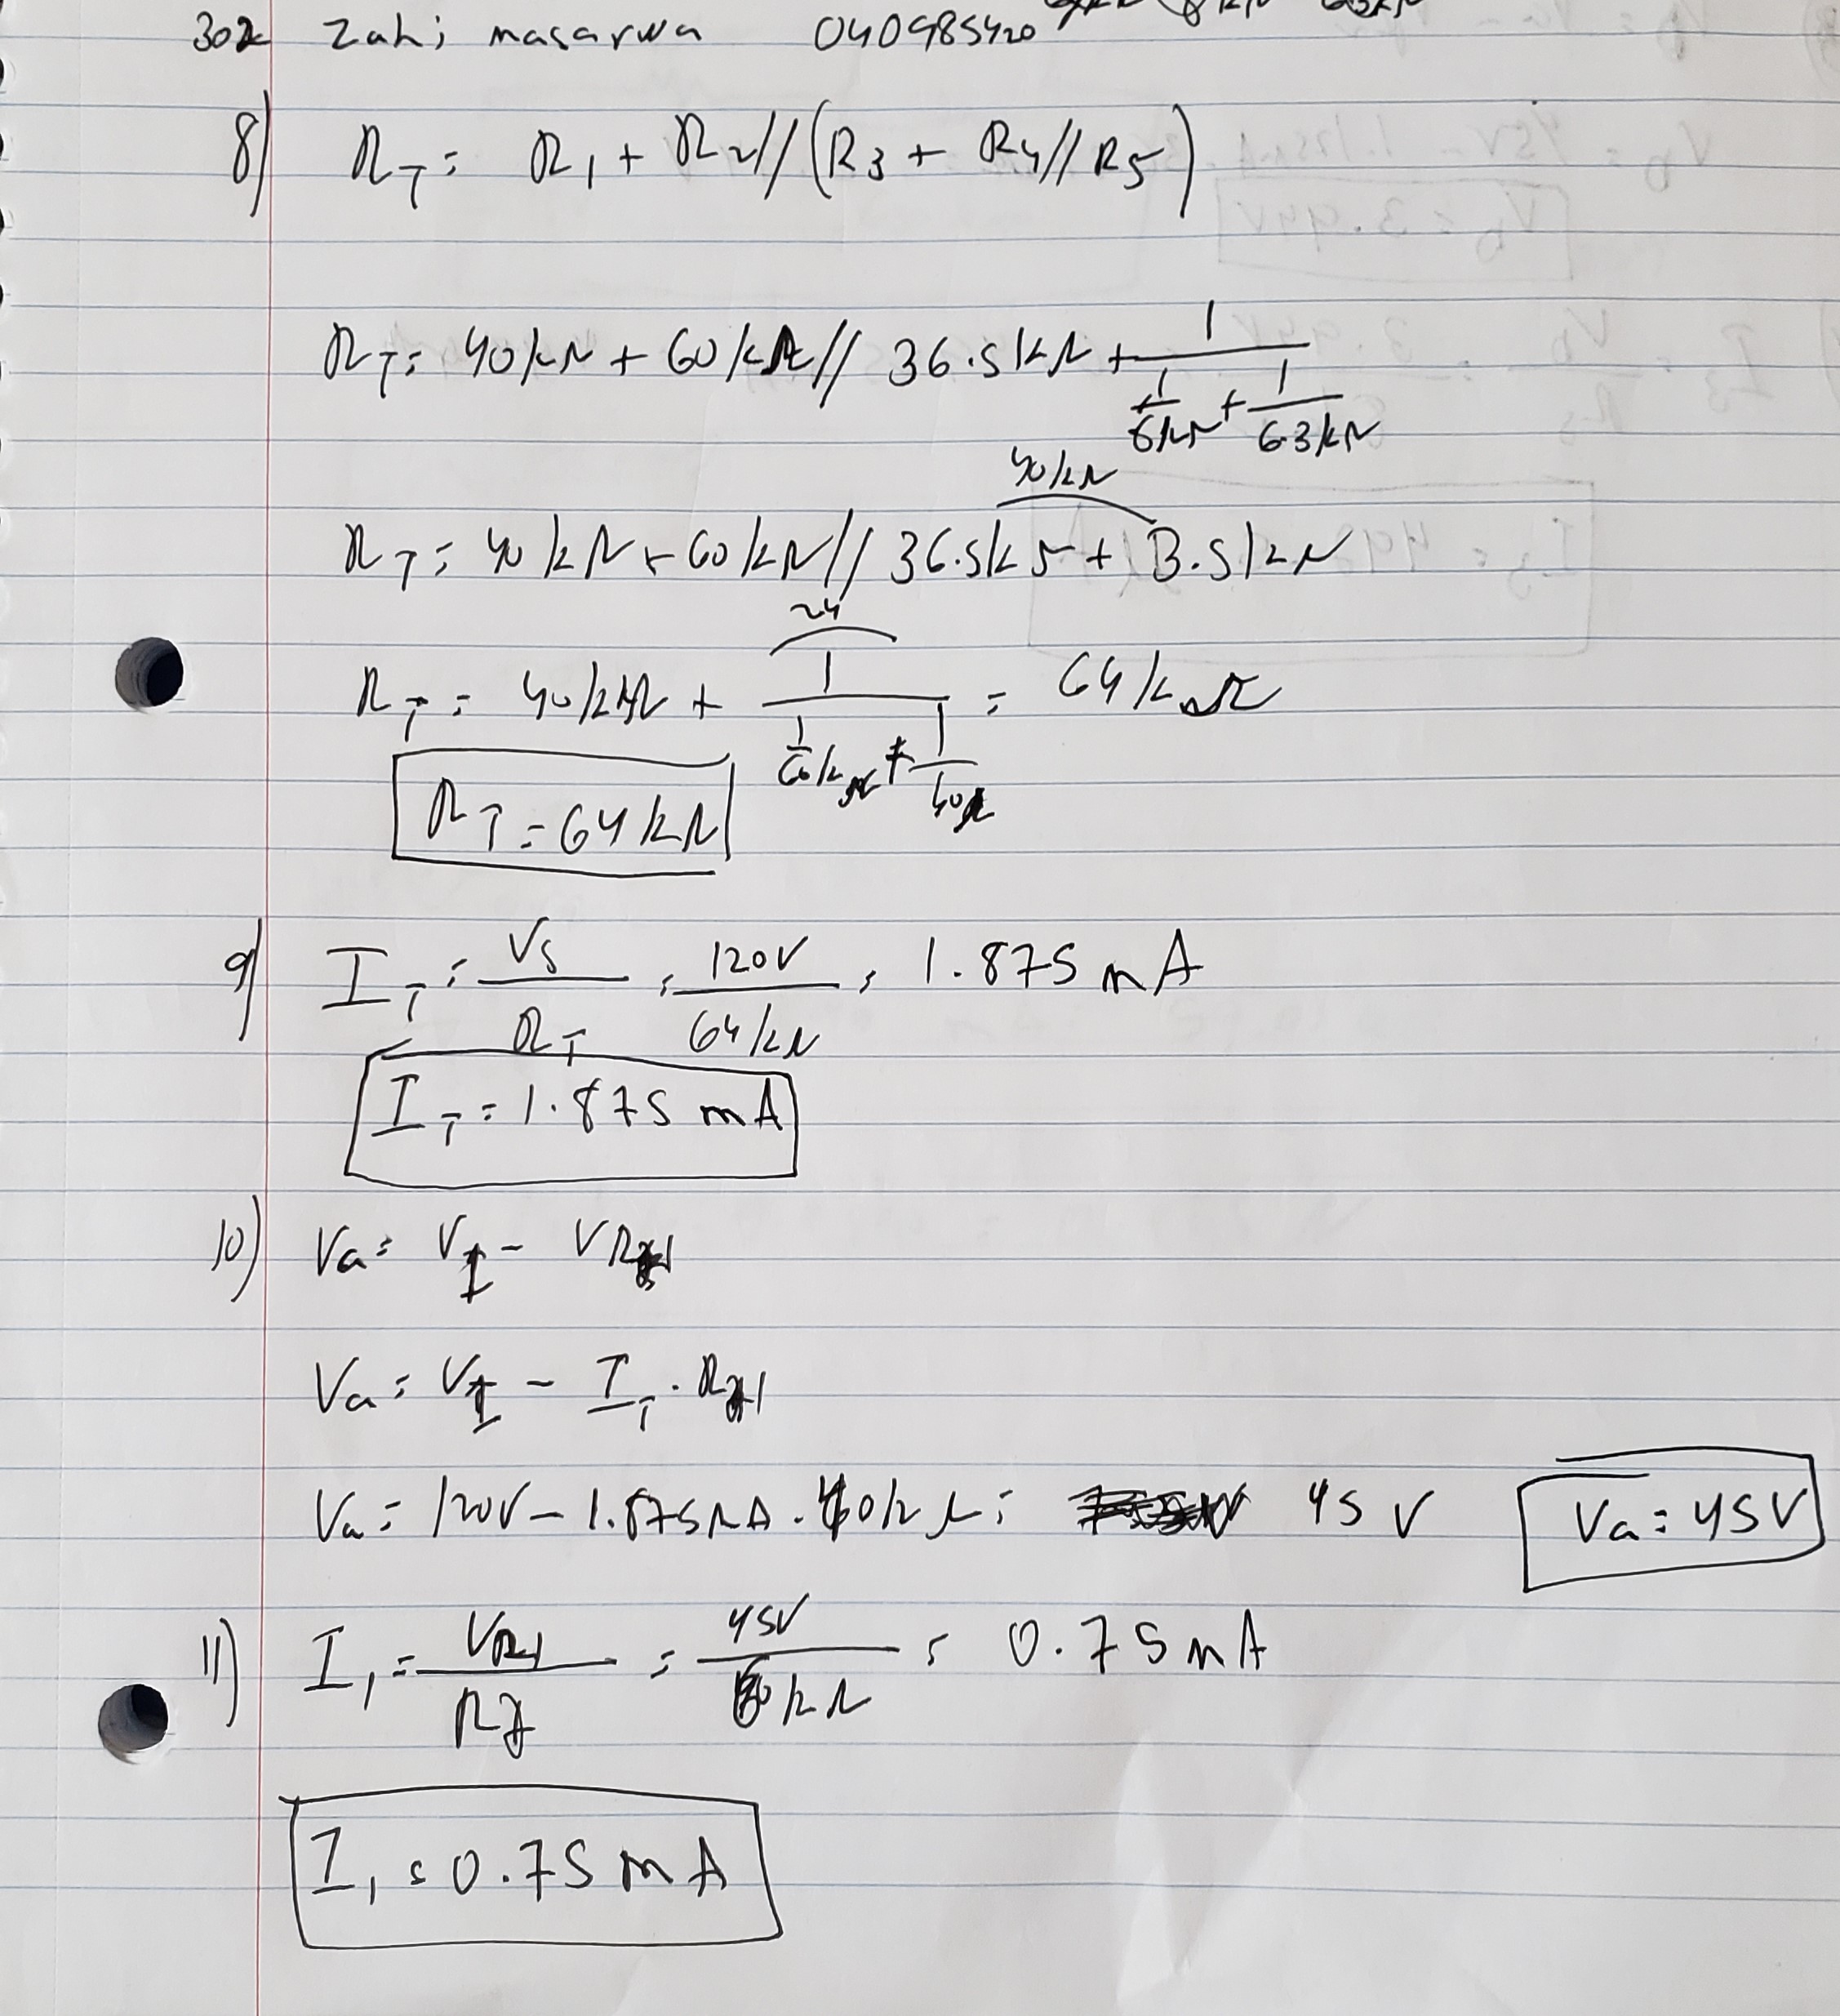 302 Zahi masarwa 040985420
8) RT = R1 + R2//(R3 + R4//R5)
RT = 40kΩ + 60kΩ// 36.5kΩ + 1/(1/8kΩ + 1/6.3kΩ)
40kΩ
RT = 40kΩ + 60kΩ// 36.5kΩ + 3.5kΩ
24
RT = 40kΩ + 1/(1/60kΩ + 1/40Ω) = 64kΩ
RT = 64kΩ
9) IT = VS/RT = 120V/64kΩ = 1.875mA
IT = 1.875 mA
10) Va = VT - VR1
Va = VT - IT · R1
Va = 120V - 1.875mA · 40kΩ = 45V Va = 45V
11) I1 = VR1/R2 = 45V/60kΩ = 0.75mA
I1 = 0.75mA